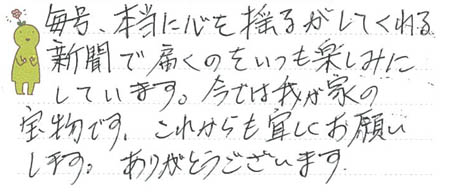 毎号、本当に心を揺るがしてくれる
新聞で届くのをいつも楽しみに
しています。今では我が家の
宝物です。これからも宜しくお願い
します。ありがとうございます。